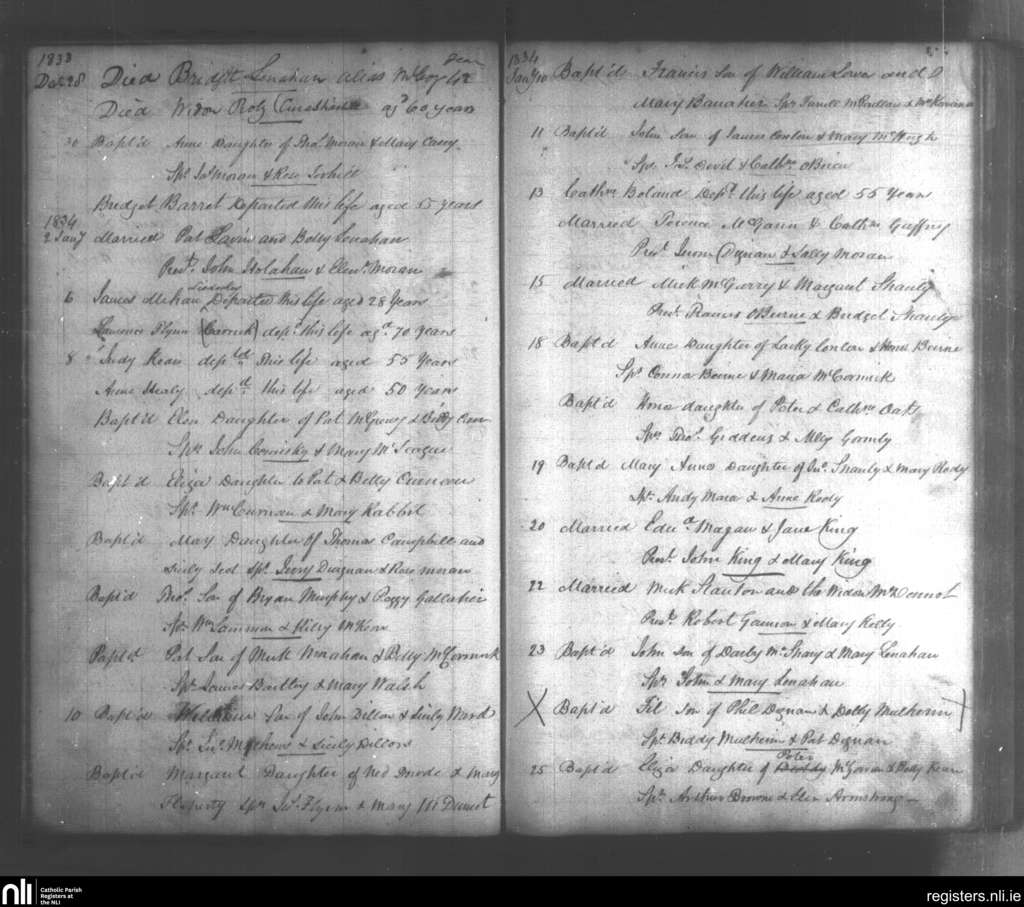 1833
Dec 28 Died Bridgt Lenahan alias McCoy 42 Year
Died Widow agd 60 years
30 Bapt'd Anne Daughter of Thos Moran & Mary Casey
Spt Jas Moran & Rose
Bridget Barret Departed this life aged 55 years
1834
2 Jany Married Pat Lavin and Betty Lenahan
Prest John Holahan & Elenr Moran
6 James Mehan Departed this life aged 28 Years
Laurence Flynn (Carrick) dept this life agd 70 years
8 Judy Kean deptd this life aged 55 Years
Anne Healy deptd this life aged 50 Years
Bapt'd Elen Daughter of Pat & Betty
Spr John Comisky & Mary McTeague
Bapt'd Eliza Daughter to Pat & Betty Curneen
Spt Wm Curnan & Mary Rabbet
Bapt'd Mary Daughter Of Thomas Campbell and
Sicily Spt Duignan & Rose moran
Bapt'd Thos Son of Bryan Murphy & Peggy Gallaher
Spt Wm & McKeon
Bapt'd Pat Son of Mick Monahan & Betty McCormick
Spt James Bartley & Mary Walsh
10 Bapt'd Son of John Dillon & Sicily Ward
Spt & Sicily Dillon
Bapt'd Margaret Daughter of Ned & Mary
Flaherty Spr Jas Flynn & Mary McDermot
1834
Jany 10 Bapt'd Francis Son of William Lowe and
Mary Banaher Spr
11 Bapt'd John Son of James Conlon & Mary McHugh
Spr & Cathne OBrien
13 Cathne Boland Dept this life aged 55 Year
Married Terence McGann & Cathne Gaffney
Prest Dignan & Sally Moran
15 Married Mick McGarry & Margaret Shanly
Prest Francis OBeirne & Bridget Shanly
18 Bapt'd Anne Daughter of Lacky Conlon & Honor Beirne
Spt Connor Beirne & Maria McCormick
Bapt'd Honor daughter of Peter & Cathne Oats
Spr Thos Giddens & Ally Gormly
19 Bapt'd Mary Anne Daughter of Jno Shanly & Mary Rody
Spt Andy Mara & Anne Rody
20 Married Edwd Magan & Jane King
Prest John King & Mary King
22 Married Mick Stanton and the Widow McDermot
Prest Robert Gannon & Mary Kelly
23 Bapt'd John Son of Darby McSharry & Mary Lenahan
Spr John & Mary Lenahan
X Bapt'd Son of Phil Dignan & Dolly Mulhern
Spt Biddy Mulhern & Pat Dignan
25 Bapt'd Eliza Daughter of Peter McGowan & Betty Kean
Spr Arthur Browne & Elen Armstrong
nli Catholic Parish
Registers at
the NLI
registers.nli.ie